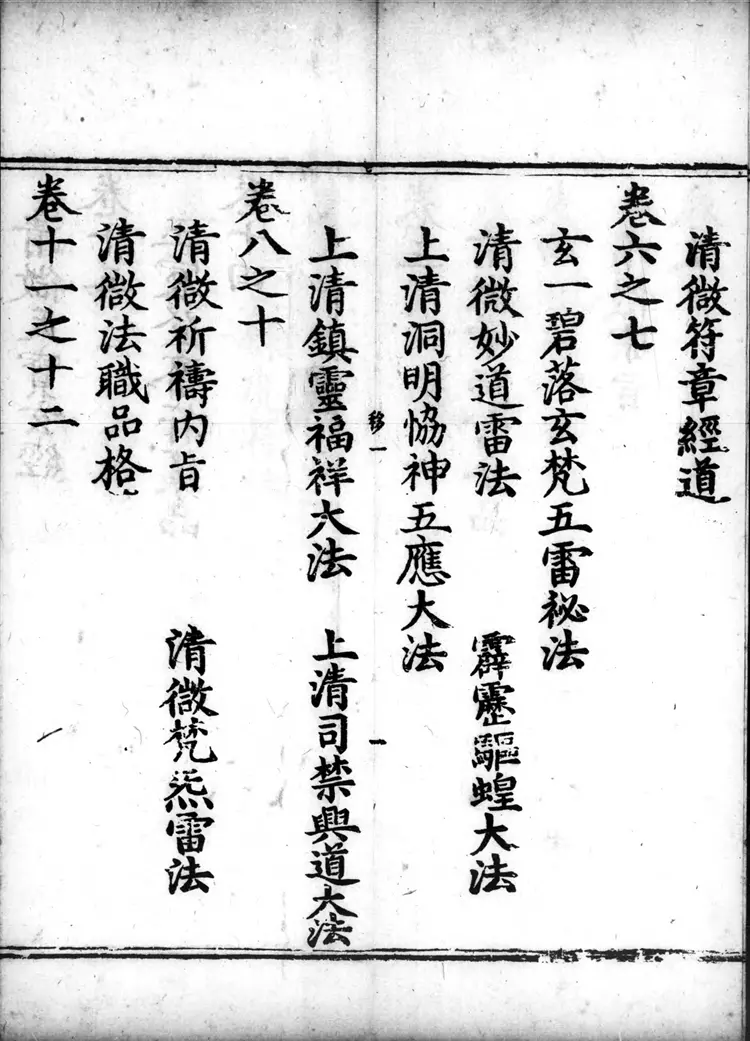 清微符章經道
卷六之七
玄一碧落玄梵五雷祕法
清微妙道雷法 霹靂驅蝗大法
上清洞明協神五應大法
移一 一
上清鎮靈福祥大法 上清司禁興道大法
卷八之十
清微祈禱內旨 清微梵炁雷法
清微法職品格
卷十一之十二